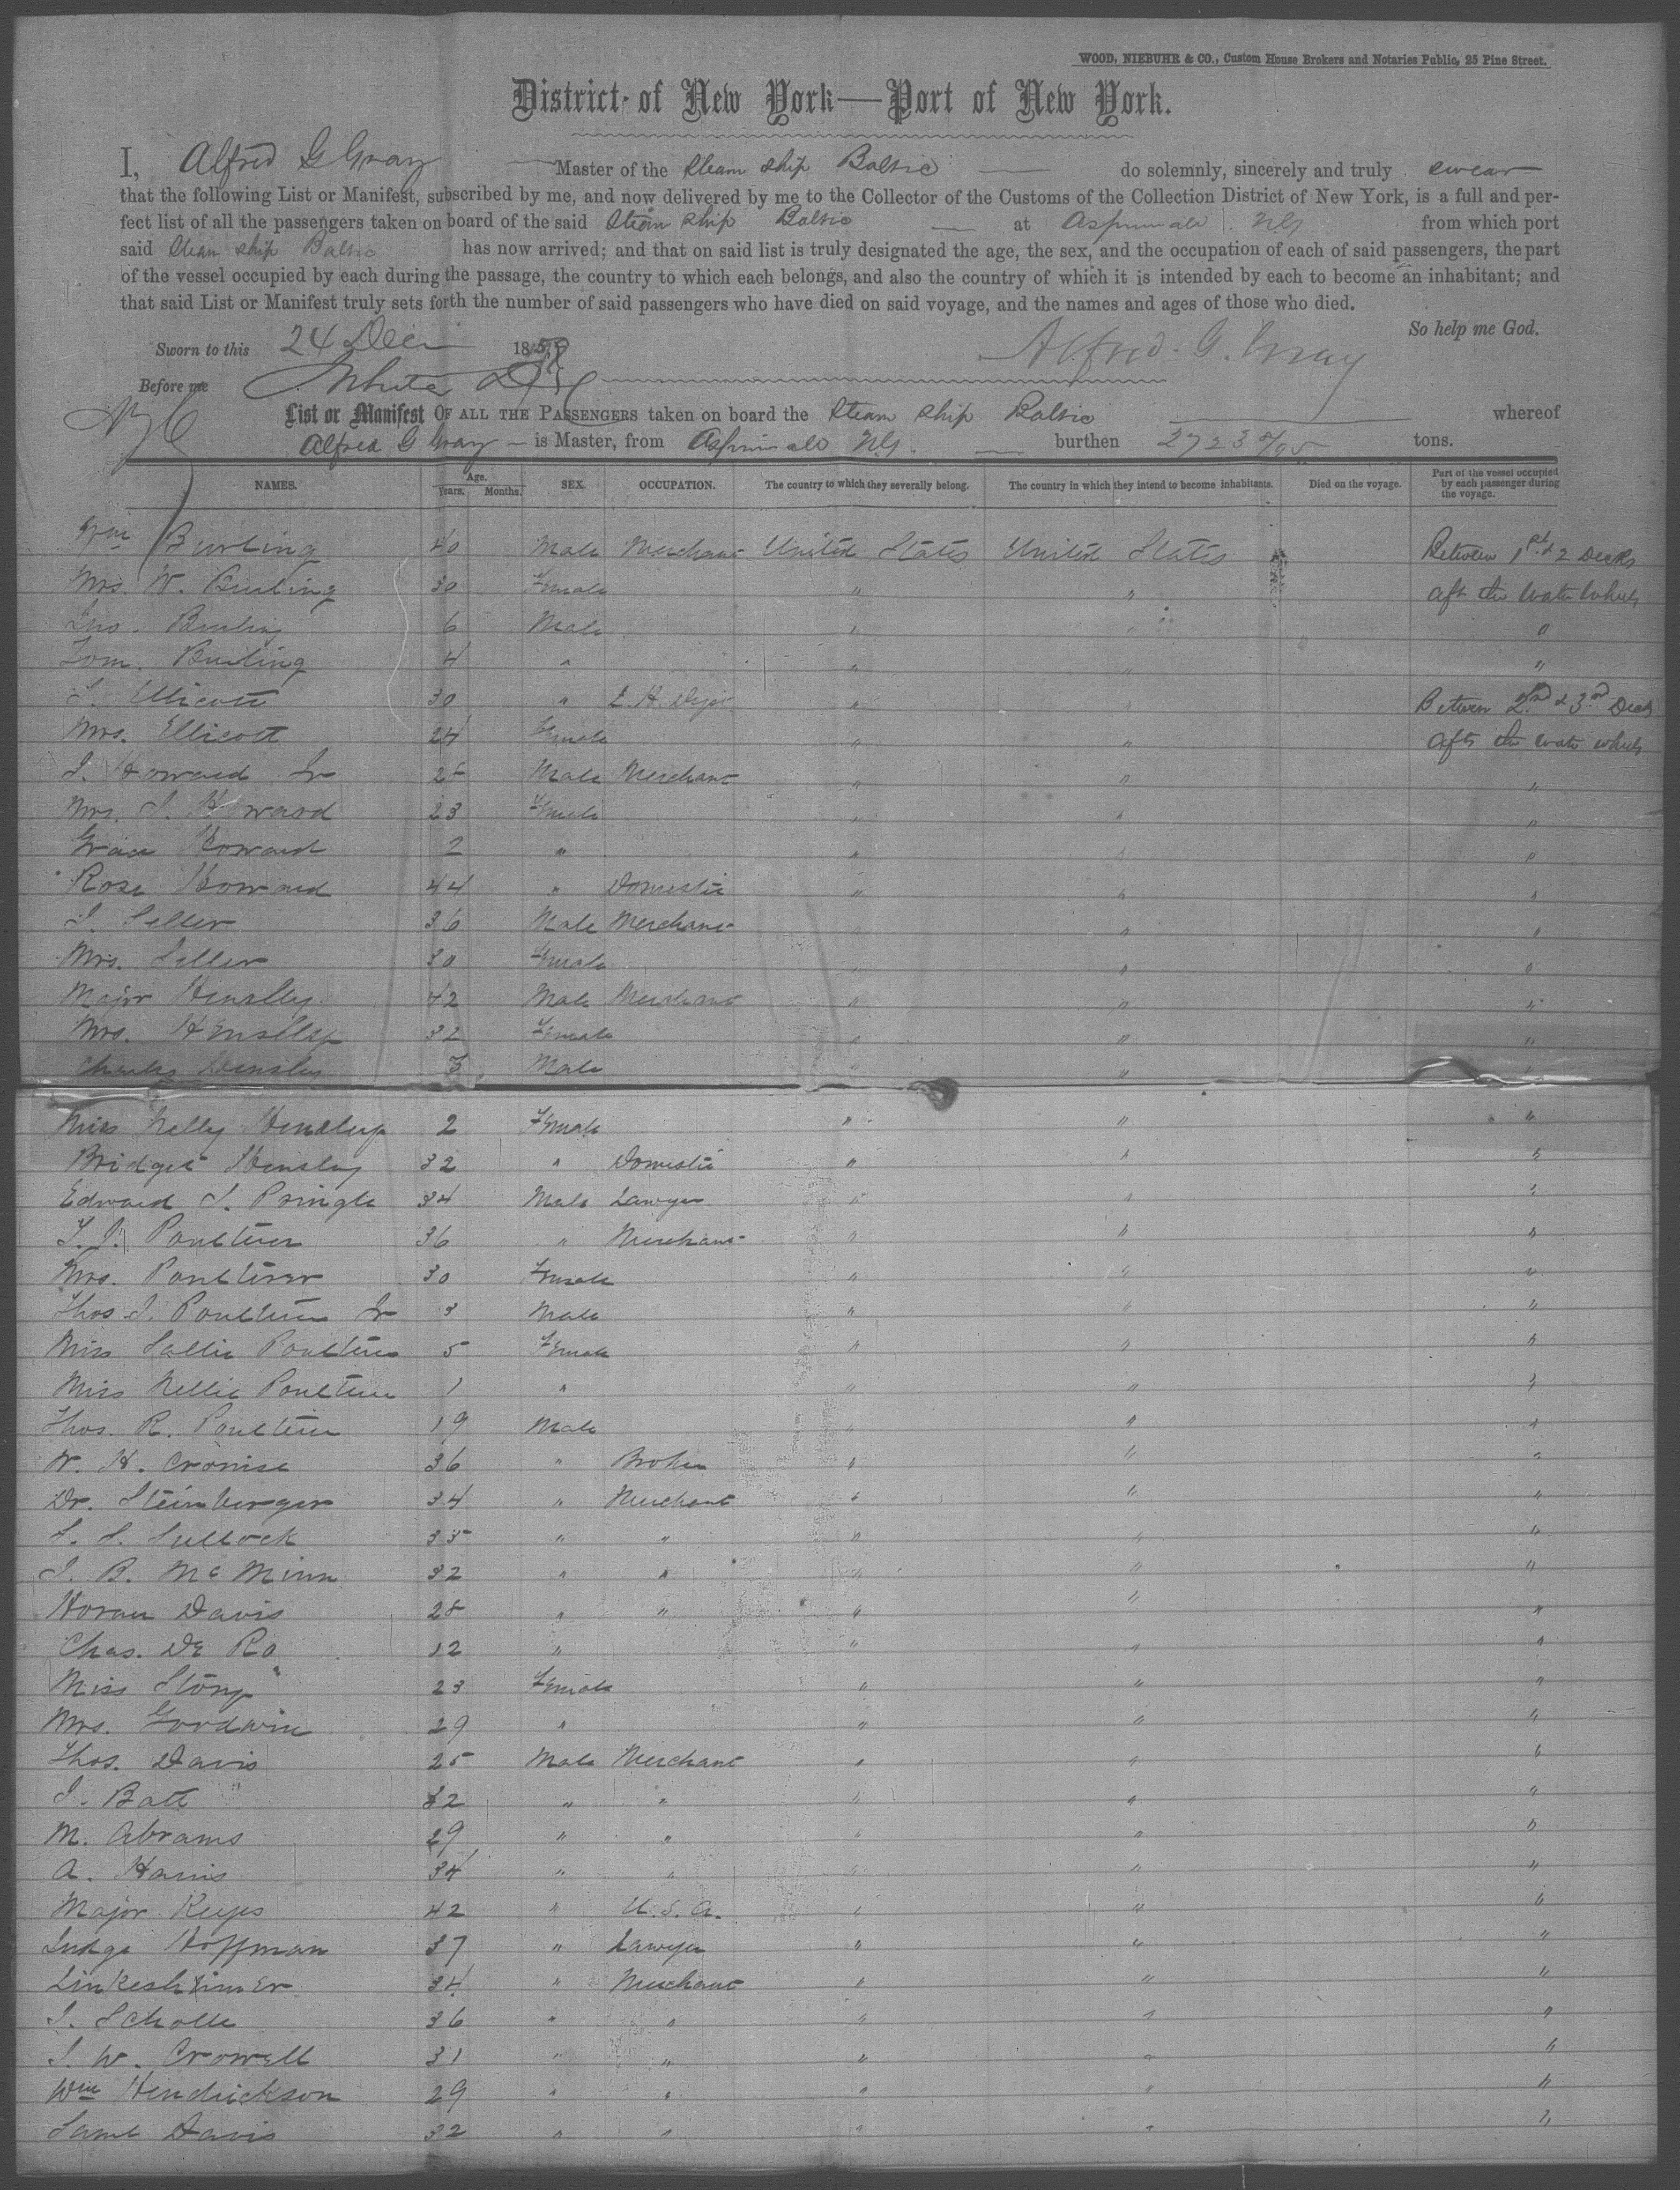 WOOD, NIEBUHR & CO., Custom House Brokers and Notaries Public, 25 Pine Street.
District of New York—Port of New York.
I, Alfred G Gray Master of the Steam Ship Baltic do solemnly, sincerely and truly swear
that the following List or Manifest, subscribed by me, and now delivered by me to the Collector of the Customs of the Collection District of New York, is a full and per-
fect list of all the passengers taken on board of the said Steam Ship Baltic at Aspinwall N.G from which port
said Steam Ship Baltic has now arrived; and that on said list is truly designated the age, the sex, and the occupation of each of said passengers, the part
of the vessel occupied by each during the passage, the country to which each belongs, and also the country of which it is intended by each to become an inhabitant; and
that said List or Manifest truly sets forth the number of said passengers who have died on said voyage, and the names and ages of those who died.
So help me God.
Sworn to this 24 Decr 1859 Alfred. G. Gray
Before me
List or Manifest OF ALL THE PASSENGERS taken on board the Steam Ship Baltic whereof
Alfred G Gray is Master, from Aspinwall N.G. burthen 2723 5/95 tons.
NAMES. Age. Years. Months. SEX. OCCUPATION. The country to which they severally belong. The country in which they intend to become inhabitants. Died on the voyage. Part of the vessel occupied by each passenger during the voyage.
Wm Burling 40 Male Merchant United States United States Between 1st & 2 Decks
Mrs. W. Burling 30 Female " " aft the Water Wheels
Jno. Burling 6 Male " " "
Tom. Burling 4 " " " "
Ellicott 30 " " " Between 2nd & 3rd Decks
Mrs. Ellicott 24 Female " " aft the water wheels
J. Howard Jr Male Merchant " " "
Mrs. J. Howard 23 Female " " "
Grace Howard 2 " " " "
Rose Howard 44 " Domestic " " "
J. Seller 36 Male Merchant " " "
Mrs. Seller 30 Female " " "
Major Hensley 42 Male Merchant " " "
Mrs. Hensley 32 Female " " "
Charles Hensley 3 Male " " "
Miss Nelly Hensley 2 Female " " "
Bridget Hensley 32 " Domestic " " "
Edward J. Pringle 34 Male Lawyer " " "
T. J. Poulterer 36 " Merchant " " "
Mrs. Poulterer 30 Female " " "
Thos. J. Poulterer Jr 3 Male " " "
Miss Sallie Poulterer 5 Female " " "
Miss Nellie Poulterer 1 " " " "
Thos. R. Poulterer 19 Male " " "
W. H. Cronise 36 " Broker " " "
Dr. Steinberger 34 " Merchant " " "
S. S. Sullock 35 " " " " "
J. B. McMinn 32 " " " " "
Horace Davis 28 " " " " "
Chas. De Ro 12 " " " "
Miss Story 23 Female " " "
Mrs. Goodwin 29 " " " "
Thos. Davis 25 Male Merchant " " "
J. Batt 32 " " " " "
M. Abrams 29 " " " " "
A. Harris 34 " " " " "
Major Keyes 42 " U.S.A. " " "
Judge Hoffman 37 " Lawyer " " "
Linkeshimer 34 " Merchant " " "
J. Scholle 36 " " " " "
J. W. Crowell 31 " " " " "
Wm Hendrickson 29 " " " " "
Saml Davis 32 " " " " "